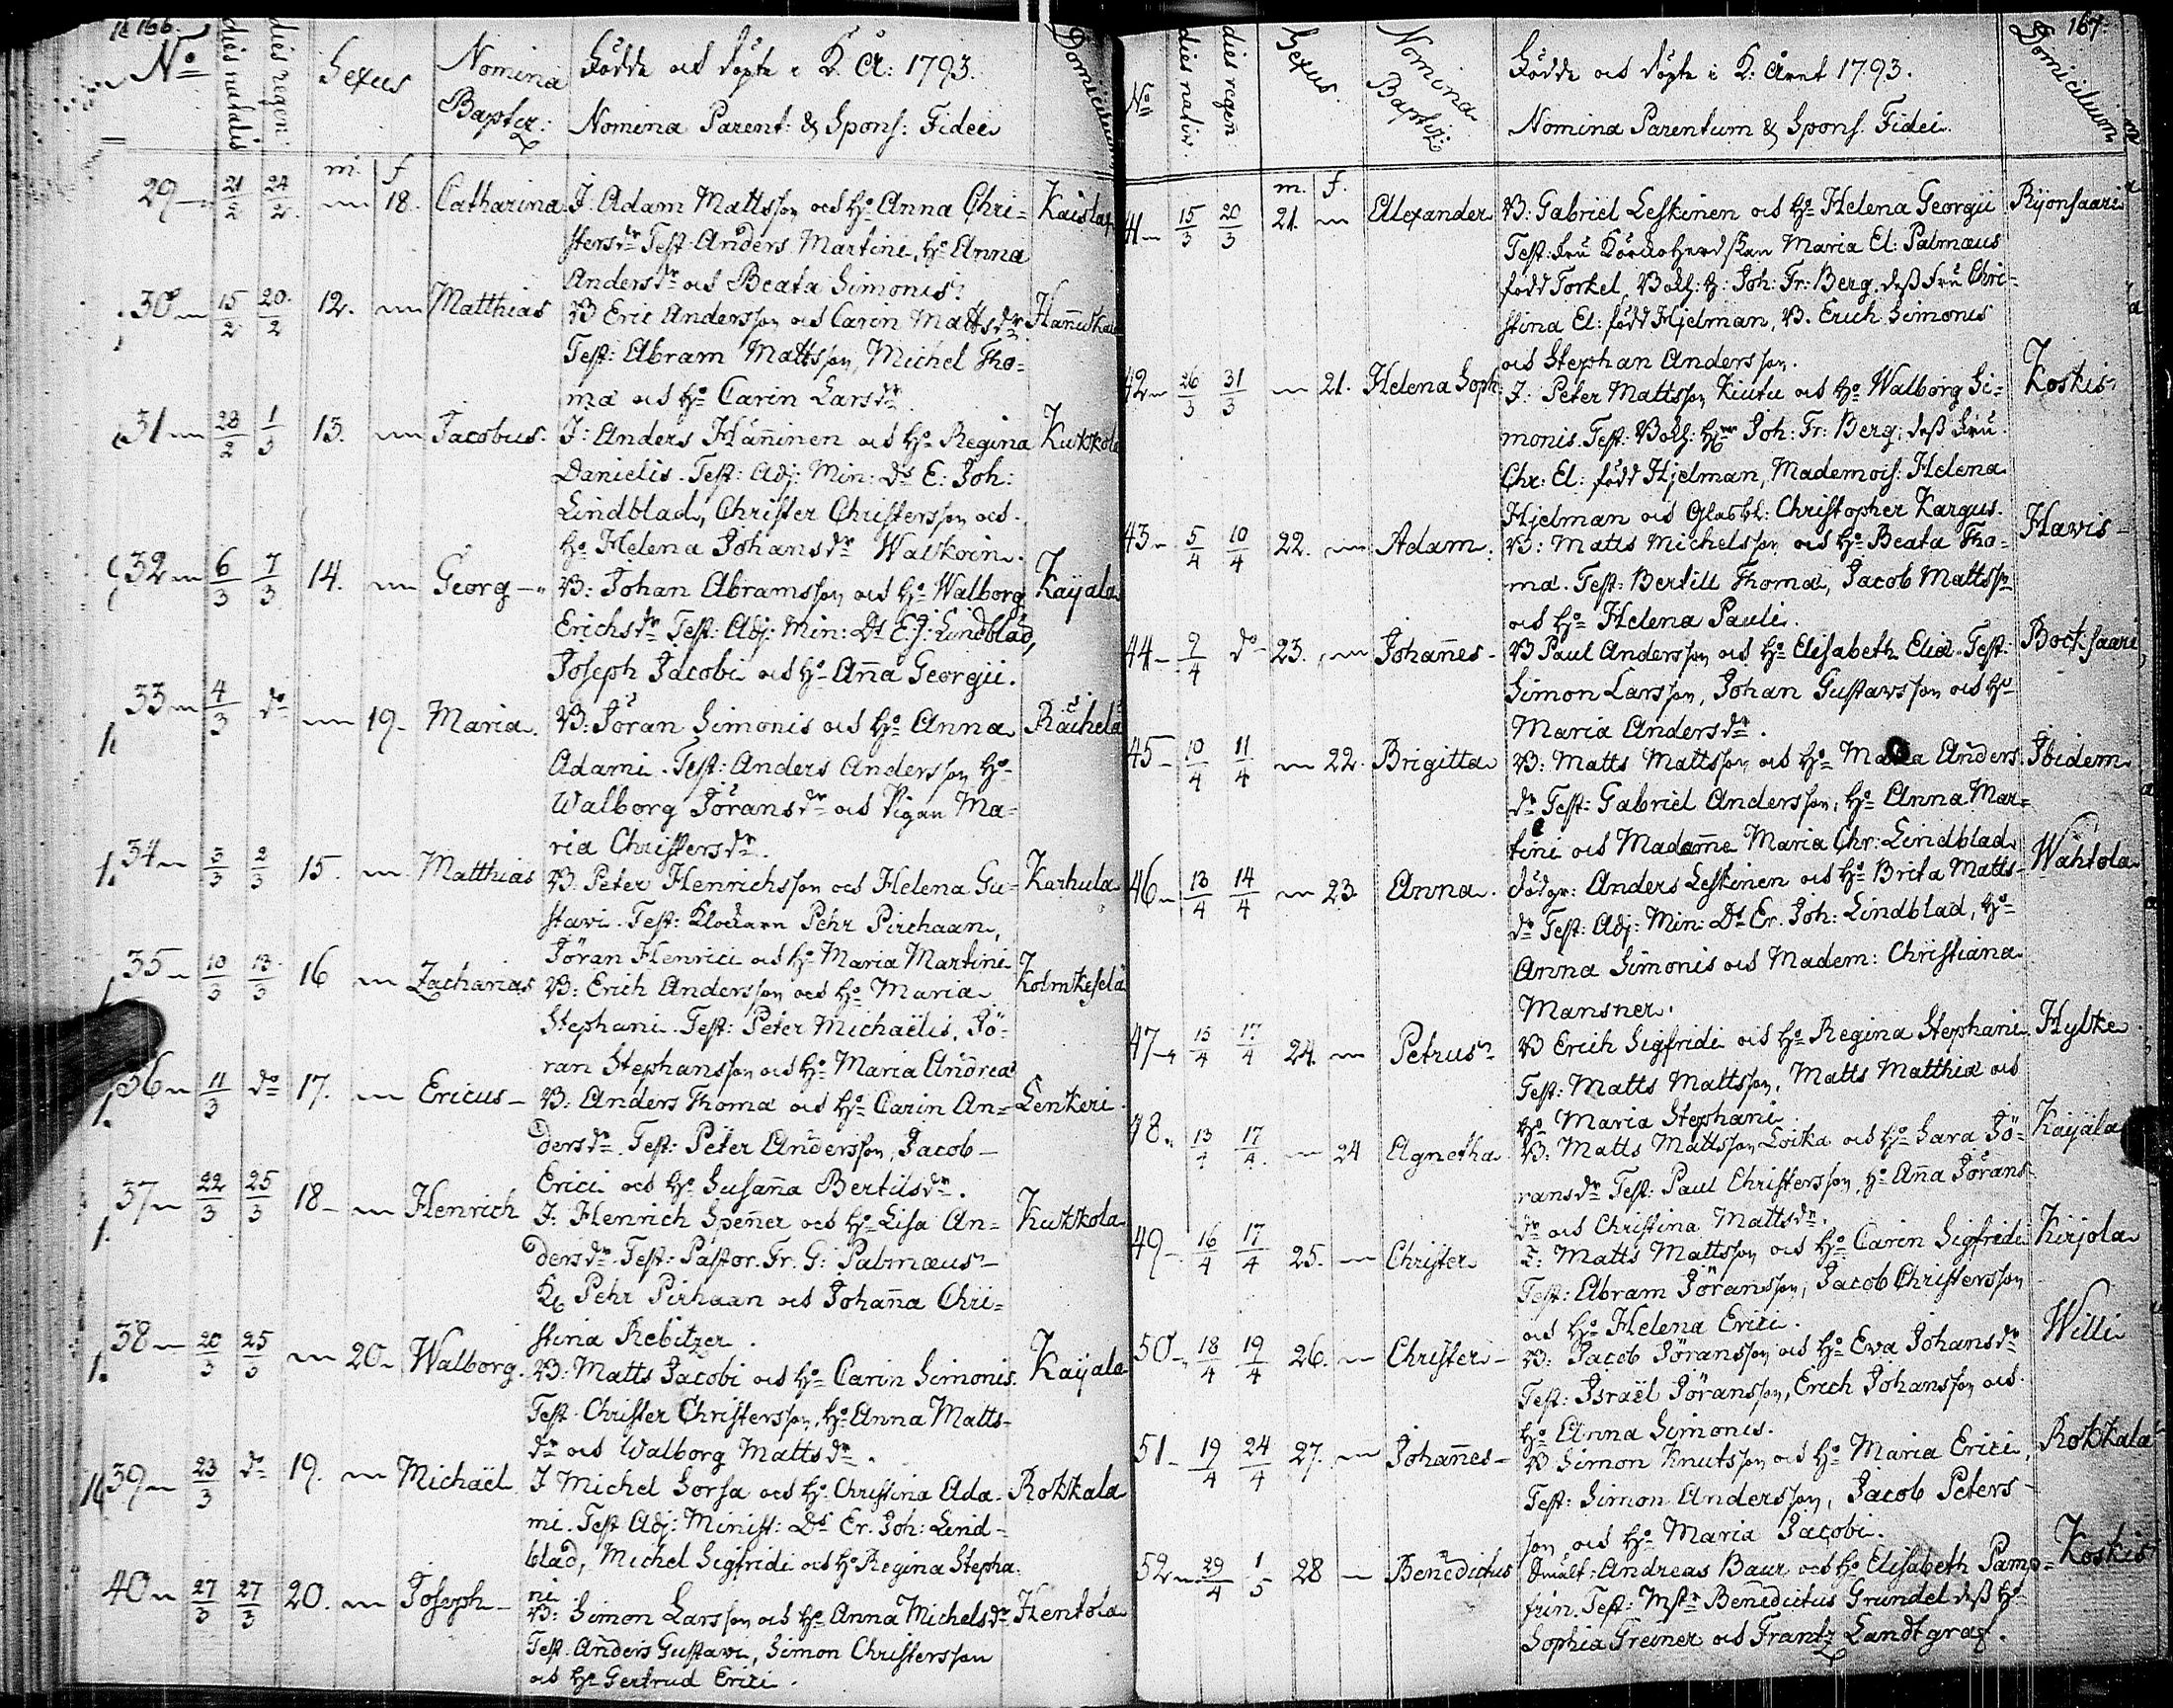 166.
No dies natalis dies regen: Sexus Nomina Baptiz: Födde och döpte i K. År: 1793.
Nomina Parent: & Spons: Fidei Domicilium
m. f
29 21/2 24/2 18. Catharina J. Adam Mattsson och Ho Anna Chri= Kaisla
stersdr Test. Anders Martini, Ho Anna
Andersdr och Beata Simonis.
30 15/2 20/2 12. Matthias B Eric Andersson och Carin Mattsdr
Test: Abram Mattsson, Michel Tho=
mæ och Ho Carin Larsdr
31 28/2 1/3 13. Jacobus. J: Anders Häninen och Ho Regina Kukkola
Danielis. Test: Adj: Min: Ds E: Joh:
Lindblad, Christer Christersson och
Ho Helena Johansdr Walkoin.
32 6/3 7/3 14. Georg B: Johan Abramsson och Ho Walborg Kaijala
Erichsdr Test: Adj: Min: Ds E: J: Lindblad,
Joseph Jacobi och Ho Ana Georgii.
33 4/3 do 19 Maria. B: Jöran Simonis och Ho Anna Räihelä
Adami. Test: Anders Andersson Ho
Walborg Jöransdr och Pigan Ma=
ria Christersdr.
34 3/3 2/3 15. Matthias B. Peter Henrichsson och Helena Gu= Karhula
stavi. Test: Klockarn Pehr Pirhaan,
Jöran Henrici och Ho Maria Martini
35 10/3 13/3 16 Zacharias B: Erich Andersson och Ho Maria Kolmikeselä
Stephani. Test: Peter Michaëlis, Jö-
ran Stephansson och Ho Maria Andreæ
36 11/3 do 17. Ericus B: Anders Thomæ och Ho Carin An= Lenkeri
dersdr. Test: Peter Andersson, Jacob
Erici och Ho Susana Bertilsdr.
37 22/3 25/3 18 Henrich J: Henrich Spener och Ho Lisa An= Kukkola
dersdr. Test: Pastor. Fr. G: Palmæus
Kl Pehr Pirhaan och Johana Chri=
stina Rebitzer.
38 20/3 25/3 20. Walborg. B: Matts Jacobi och Ho Carin Simonis. Kaijala
Test. Christer Christersson, Ho Anna Matts-
dr och Walborg Mattsdr.
39 23/3 do 19. Michaël J Michel Sorsa och Ho Christina Ada- Rokkala
mi. Test Adj: Minist: Ds Er. Joh: Lind=
blad, Michel Sigfridi och Ho Regina Stepha
ni
40 27/3 27/3 20. Joseph B: Simon Larsson och Ho Anna Michelsdr Hentola
Test. Anders Gustavi, Simon Christersson
och Ho Gertrud Erici.
167.
No dies nativ. dies regen: Sexus. Nomina Baptiz: Födde och döpte i K: Året 1793.
Nomina Parentum & Spons. Fidei. Domicilium
m. f.
41 15/3 20/3 21. Alexander B: Gabriel Leskinen och Ho Helena Georgii Ryönsaari
Test: Fru Kÿrkoherdskan Maria El: Palmæus
född Torkel, Bokh: H: Joh: Fr: Berg, dess Fru Chri-
stina El: född Hjelman, B. Erich Simonis
och Stephan Andersson.
42 26/3 31/3 21. Helena Soph J: Peter Mattsson Kiutu och Ho Walborg Si= Koskis
monis. Test: Bokh: Joh: Fr: Berg; dess Fru
Chr: El: född Hjelman, Mademois: Helena
Hjelman och Glasbl: Christopher Kargus.
43 5/4 10/4 22. Adam. B: Matts Michelsson och Ho Beata Tho= Havis
mæ. Test: Bertill Thomæ, Jacob Mattss
och Ho Helena Pauli.
44 9/4 do 23. Johanes B Paul Andersson och Ho Elisabeth Eliæ. Test: Bocksaari
Simon Larsson, Johan Gustavsson och Ho
Maria Andersdr.
45 10/4 11/4 22. Brigitta B: Matts Mattsson och Ho Maria Anders Ibidem
dr Test: Gabriel Andersson, Ho Anna Mar=
tini och Madame Maria Chr: Lindblad
46 13/4 14/4 23. Anna. Anders Leskinen och Ho Brita Matts- Wahtola
dr Test: Adj: Min: Ds Er. Joh: Lindblad, Ho
Anna Simonis och Madem: Christiana
Mansner.
47 15/4 17/4 24. Petrus B Erich Sigfridi och Ho Regina Stephani Hylke
Test: Matts Mattsson, Matts Matthiæ och
Ho Maria Stephani.
48. 13/4 17/4 24 Agnetha B: Matts Mattsson Loika och Ho Sara Jö= Kaijala
ransdr Test: Paul Christersson, Ho Ana Jörans
dr och Christina Mattsdr.
49 16/4 17/4 25. Christer Matts Mattsson och Ho Carin Sigfridi Kirjola
Test: Abram Jöransson, Jacob Christersson
och Ho Helena Erici.
50 18/4 19/4 26. Christer B: Jacob Jöransson och Ho Eva Johansdr Willi
Test: Israël Jöransson, Erich Johansson och
Ho Anna Simonis.
51 19/4 24/4 27. Johanes B Simon Knutsson och Ho Maria Erici, Rokkala
Test: Simon Andersson, Jacob Peters
son och Ho Maria Jacobi.
52 29/4 1/5 28 Benedictus Smält: Andreas Baur och Ho Elisabeth Pamp= Koskis
frin. Test: Mstr Benedictus Grundel dess Ho
Sophia Greiner och Frantz Landtgraf.